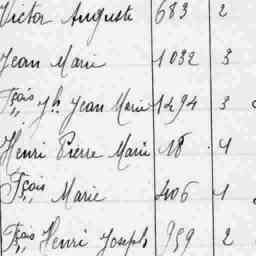 Victor Auguste 683 2
Jean Marie 1032 3
Fçois Jh Jean Marie 1294 3
Henri Pierre Marie 18 4
Fçois Marie 406 1
Fçois Henri Joseph 959 2